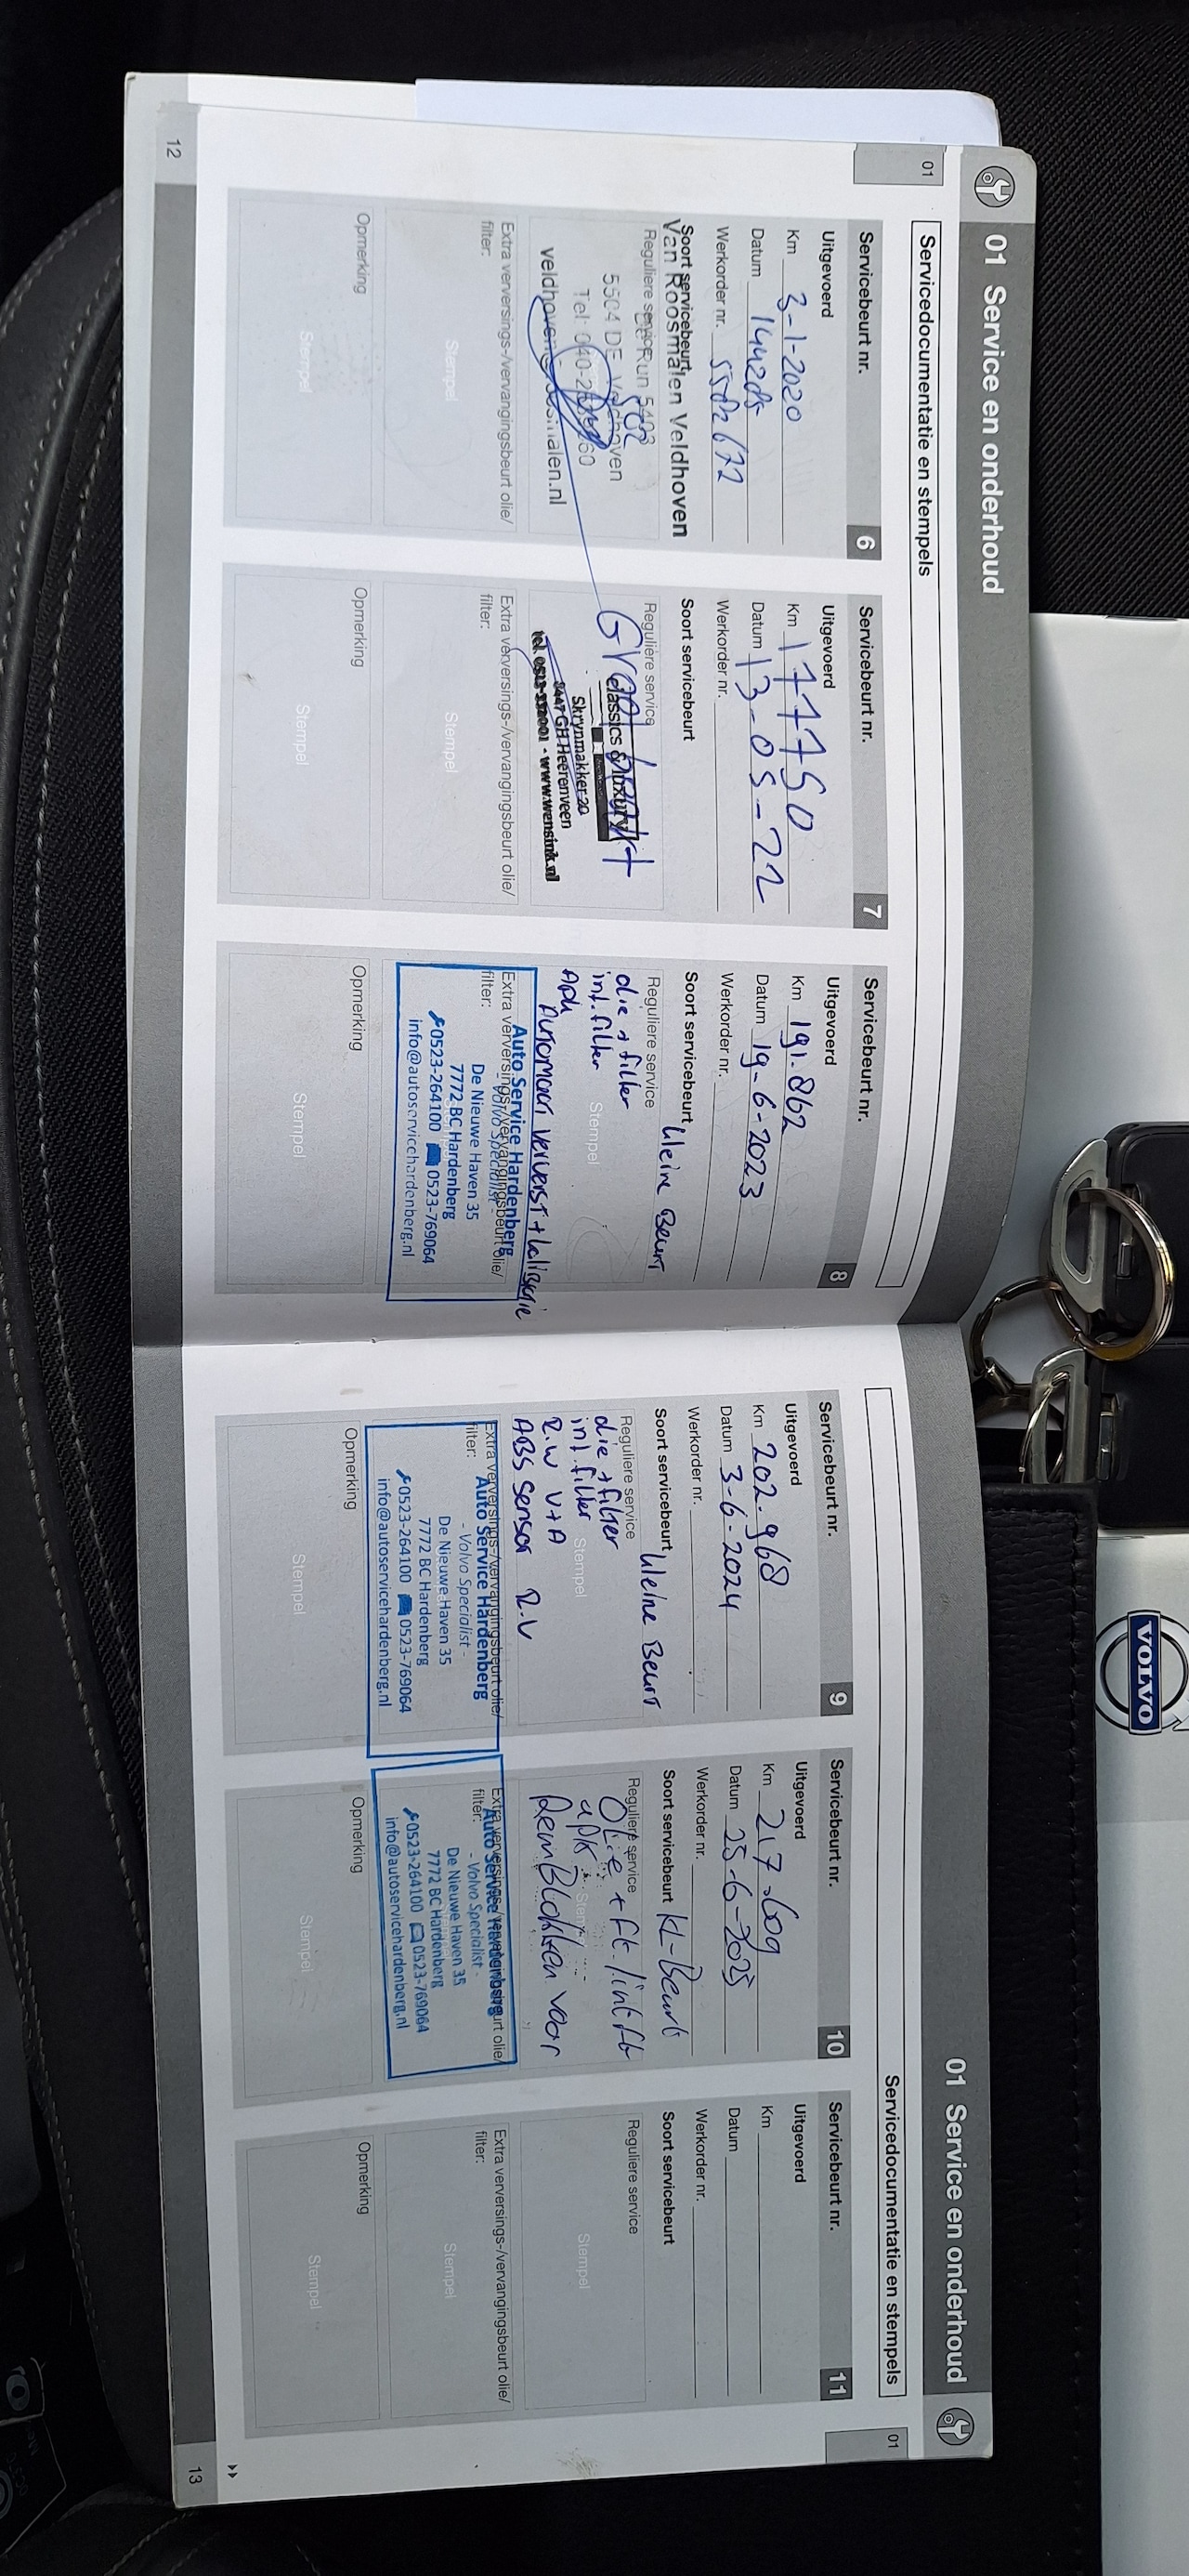 01 Service en onderhoud
01
Servicedocumentatie en stempels
Servicebeurt nr. 6
Uitgevoerd
Km 3-1-2020
Datum
Werkorder nr.
Soort servicebeurt
Van Roosmalen Veldhoven
Reguliere service
De Run
5504 DE Veldhoven
Extra verversings-/vervangingsbeurt olie/
filter:
Stempel
Opmerking
Stempel
Servicebeurt nr. 7
Uitgevoerd
Km 177750
Datum 13-05-22
Werkorder nr.
Soort servicebeurt
Reguliere service
Groot beurt
Classics & luxury
Skrynmakker 20
8447 GH Heerenveen
www.wensink.nl
Extra verversings-/vervangingsbeurt olie/
filter:
Stempel
Opmerking
Stempel
Servicebeurt nr. 8
Uitgevoerd
Km 191.862
Datum 19-6-2023
Werkorder nr.
Soort servicebeurt Kleine Beurt
Reguliere service
olie + filter
int. filter
Stempel
APK
Automaat ververst +
Extra verversings-/vervangingsbeurt olie/
filter:
Auto Service Hardenberg
- Volvo Specialist -
De Nieuwe Haven 35
7772 BC Hardenberg
0523-264100 0523-769064
info@autoservicehardenberg.nl
Opmerking
Stempel
12
01 Service en onderhoud
01
Servicedocumentatie en stempels
Servicebeurt nr. 9
Uitgevoerd
Km 202.968
Datum 3-6-2024
Werkorder nr.
Soort servicebeurt Kleine Beurt
Reguliere service
olie + filter
int. filter
Stempel
R.W V+A
ABS sensor R.V
Extra verversings-/vervangingsbeurt olie/
filter:
Auto Service Hardenberg
- Volvo Specialist -
De Nieuwe Haven 35
7772 BC Hardenberg
0523-264100 0523-769064
info@autoservicehardenberg.nl
Opmerking
Stempel
Servicebeurt nr. 10
Uitgevoerd
Km 217.609
Datum 25-6-2025
Werkorder nr.
Soort servicebeurt KL-Beurt
Reguliere service
Olie + flt. / int flt
apk
Remblokken voor
Extra verversings-/vervangingsbeurt olie/
filter:
Auto Service Hardenberg
- Volvo Specialist -
De Nieuwe Haven 35
7772 BC Hardenberg
0523-264100 0523-769064
info@autoservicehardenberg.nl
Opmerking
Stempel
Servicebeurt nr. 11
Uitgevoerd
Km
Datum
Werkorder nr.
Soort servicebeurt
Reguliere service
Stempel
Extra verversings-/vervangingsbeurt olie/
filter:
Stempel
Opmerking
Stempel
13
VOLVO